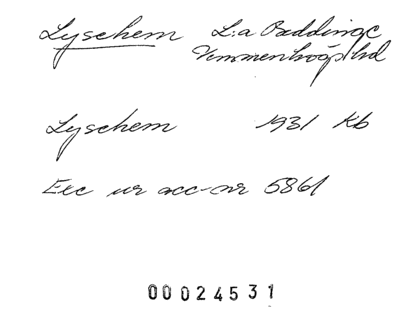 Lyschem L:a Beddinge
Vemmenhögs hd
Lyschem 1931 Kb
Exc ur acc-nr 5861
00024531